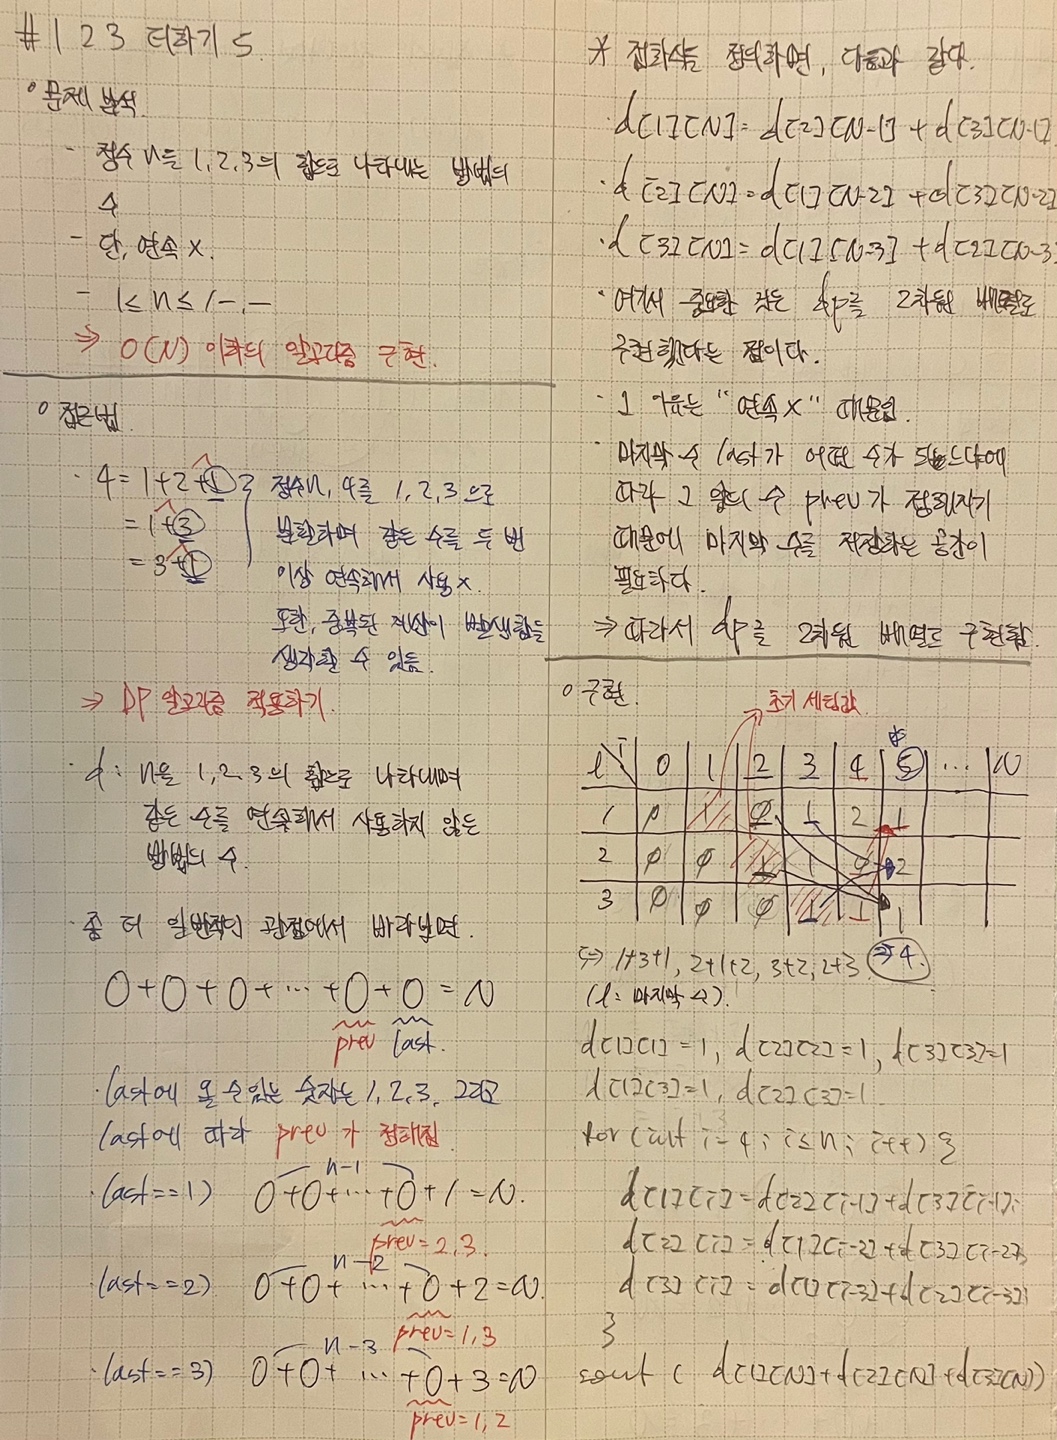 # 1 2 3 더하기 5
° 문제 분석.
- 정수 n을 1,2,3의 합으로 나타내는 방법의
수
- 단, 연속 X.
- 1 ≤ n ≤ 1-,-
⇒ O(N) 이하의 알고리즘 구현.
° 접근법.
· 4 = 1+2+1
= 1+3
= 3+1
정수 n, 4를 1,2,3으로
분할하며 같은 수를 두 번
이상 연속해서 사용 X.
또한, 중복된 계산이 발생함을
생각할 수 있음.
⇒ DP 알고리즘 적용하기.
· d : n을 1,2,3의 합으로 나타내며
같은 수를 연속해서 사용하지 않는
방법의 수.
· 좀 더 일반적인 관점에서 바라보면.
O+O+O+ ··· +O+O = N
prev last.
· last에 올 수 있는 숫자는 1,2,3. 그리고
last에 따라 prev가 정해짐.
n-1
· last==1) O+O+···+O+1=N.
prev=2,3.
n-2
· last==2) O+O+ ··· +O+2=N.
prev=1,3
n-3
· last==3) O+O+ ··· +O+3=N
prev=1,2
* 점화식을 정의하면, 다음과 같다.
· d[1][N] = d[2][N-1] + d[3][N-1]
· d[2][N] = d[1][N-2] + d[3][N-2]
· d[3][N] = d[1][N-3] + d[2][N-3
· 여기서 중요한 것은 dp를 2차원 배열로
구현했다는 점이다.
· 그 이유는 "연속 X" 때문임.
· 마지막 수 last가 어떤 수가 오느냐에
따라 그 앞의 수 prev가 정해지기
때문에 마지막 수를 저장하는 공간이
필요하다.
⇒ 따라서 dp를 2차원 배열로 구현함.
° 구현.
초기 세팅값.
l i 0 1 2 3 4 5 ··· N
1 0 1 0 1 2 1
2 0 0 1 1 0 2
3 0 0 0 1 1 1
⇨ 1+3+1, 2+1+2, 3+2, 2+3. ⇒ 4.
(l : 마지막 수).
d[1][1] = 1, d[2][2] = 1, d[3][3] = 1
d[1][3] = 1, d[2][3] = 1.
for (int i = 4; i ≤ n; i++) {
d[1][i] = d[2][i-1] + d[3][i-1];
d[2][i] = d[1][i-2] + d[3][i-2];
d[3][i] = d[1][i-3] + d[2][i-3];
}
sout ( d[1][N] + d[2][N] + d[3][N])